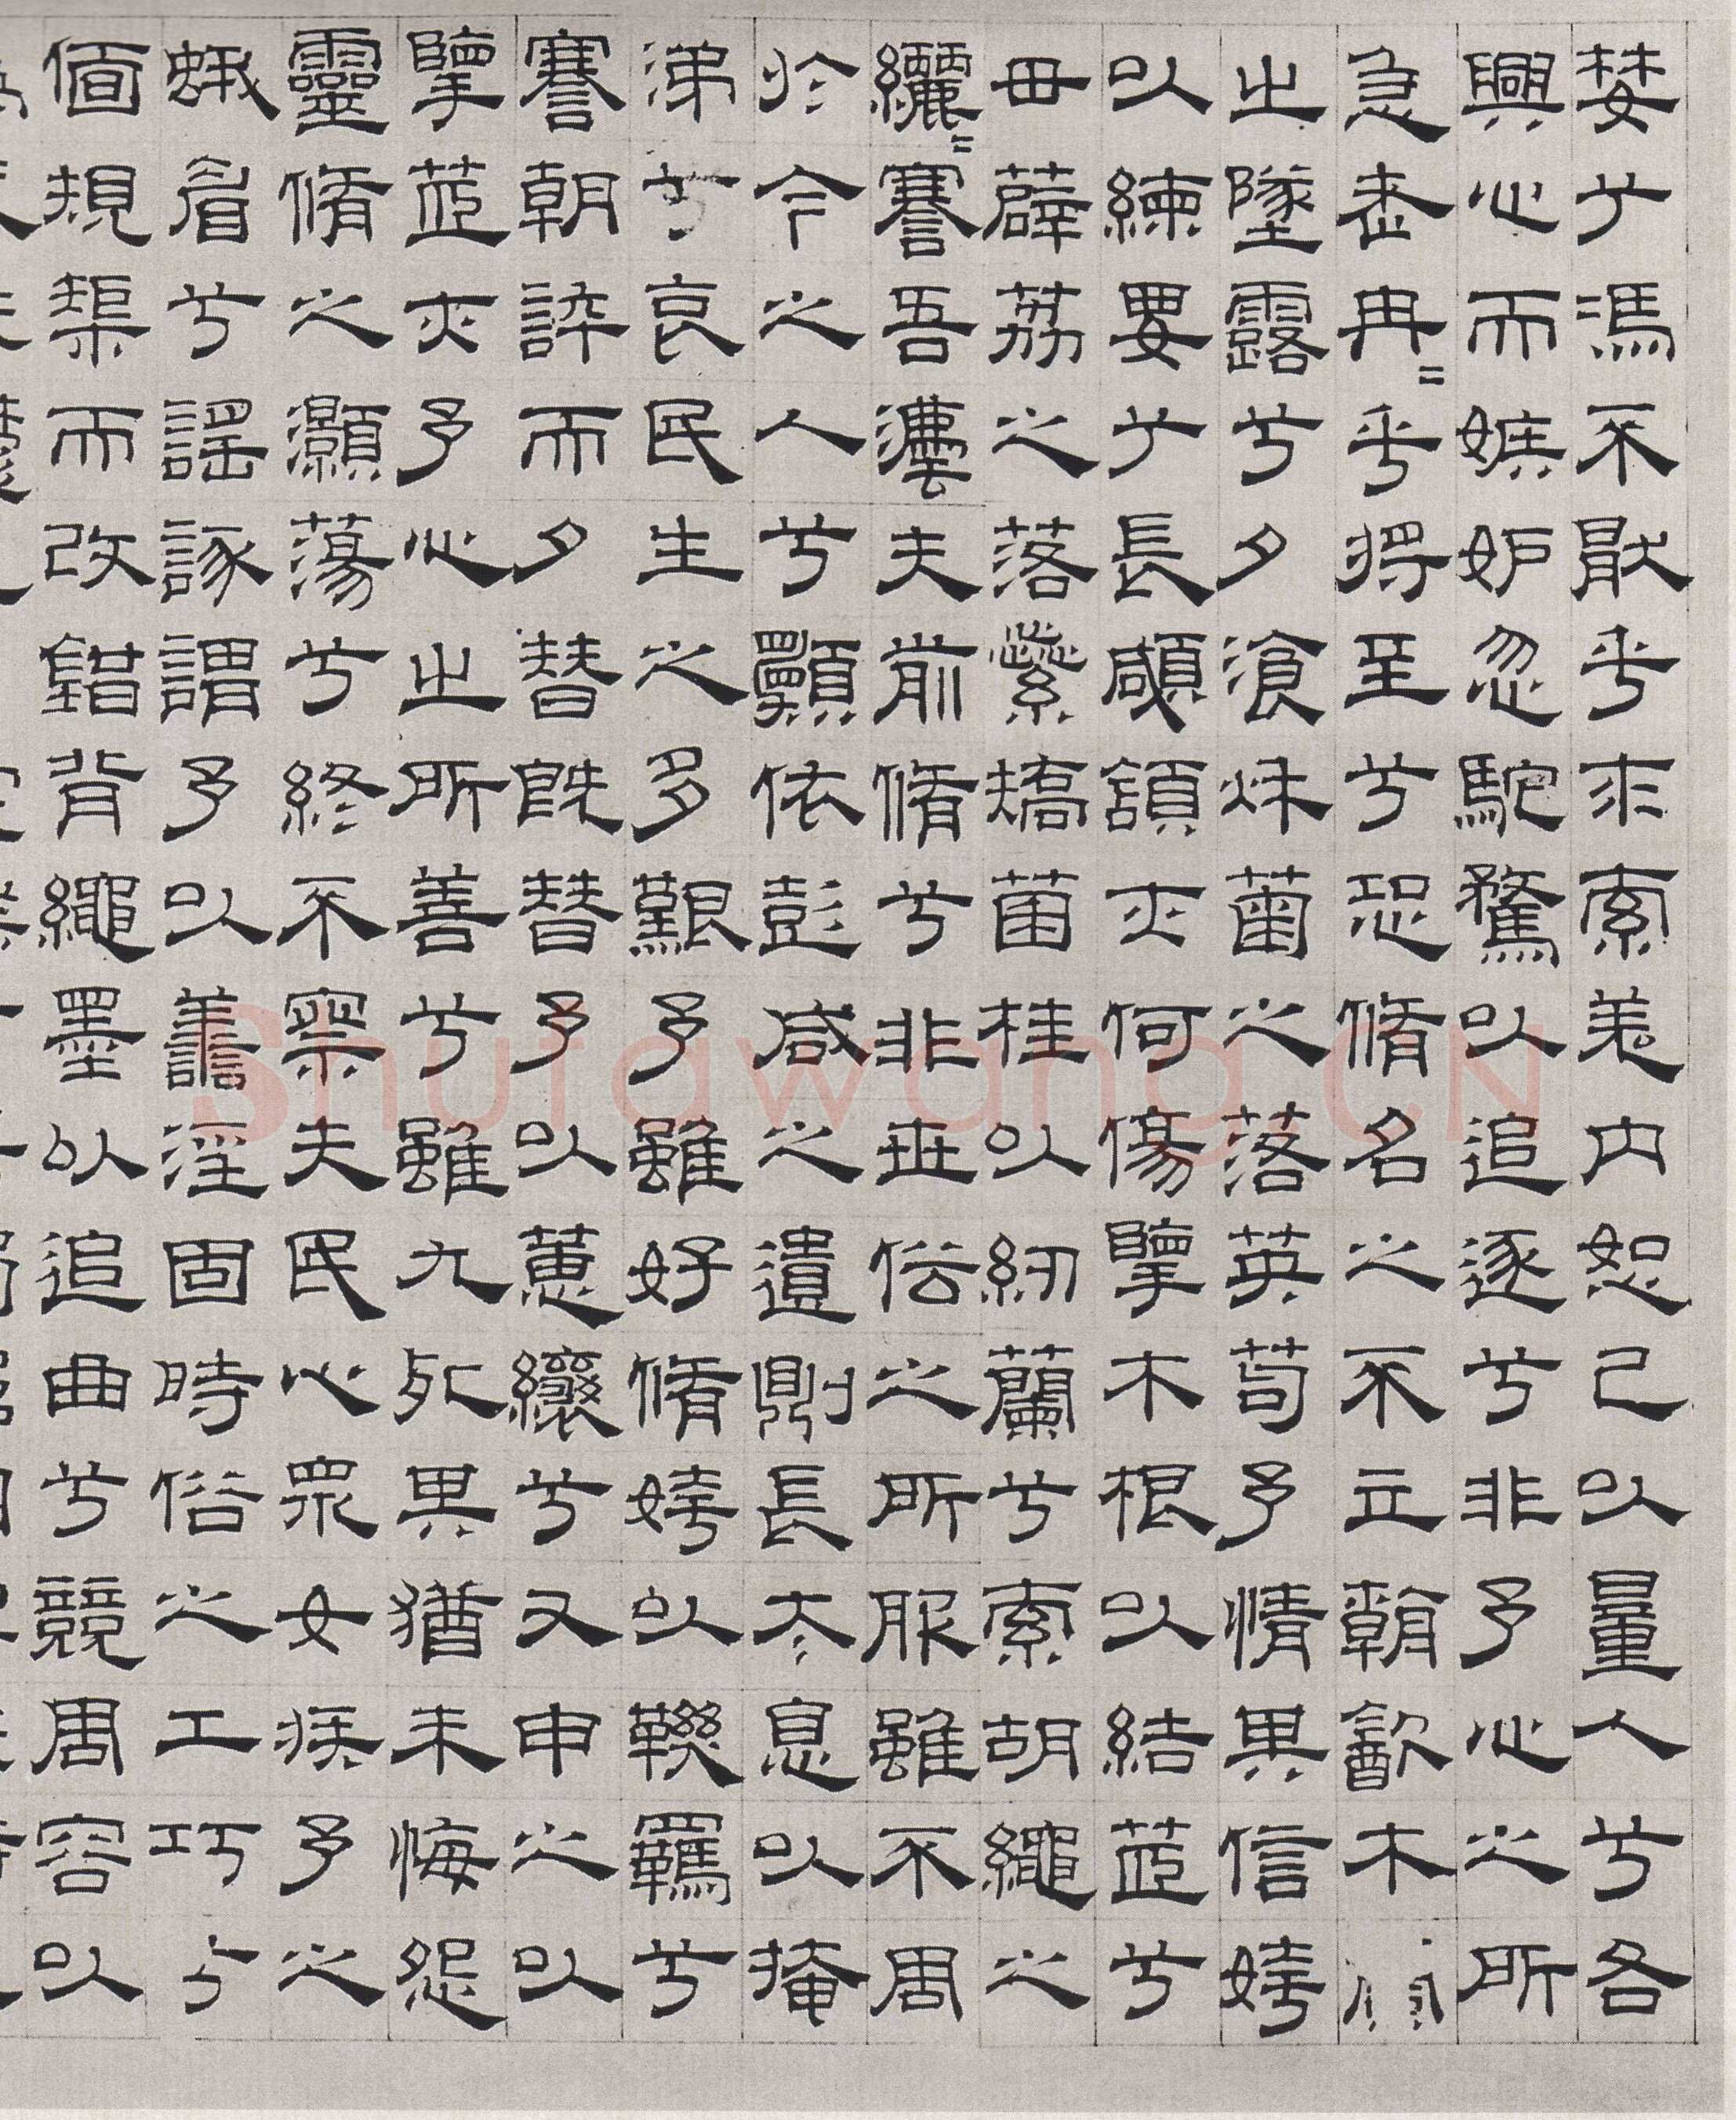 婪兮馮不猒乎求索羌內恕己以量人兮各
興心而嫉妒忽馳騖以追逐兮非予心之所
急老冉=乎將至兮恐脩名之不立朝飲木
之墜露兮夕湌秋菊之落英苟予情其信姱
以練要兮長顑頷亦何傷擥木根以結茝兮
毌薜荔之落蘂矯菌桂以紉蘭兮索胡繩之
纚=謇吾灋夫前脩兮非世俗之所服雖不周
於今之人兮顠依彭咸之遺則長太息以掩
涕兮哀民生之多艱予雖好脩姱以鞿羈兮
謇朝誶而夕替既替予以蕙纕兮又申之以
擥茝亦予心之所善兮雖九死其猶未悔怨
靈脩之灝蕩兮終不察夫民心眾女疾予之
蛾眉兮謠諑謂予以善淫固時俗之工巧兮
偭規榘而改錯背繩墨以追曲兮競周容以
Shufawang.CN